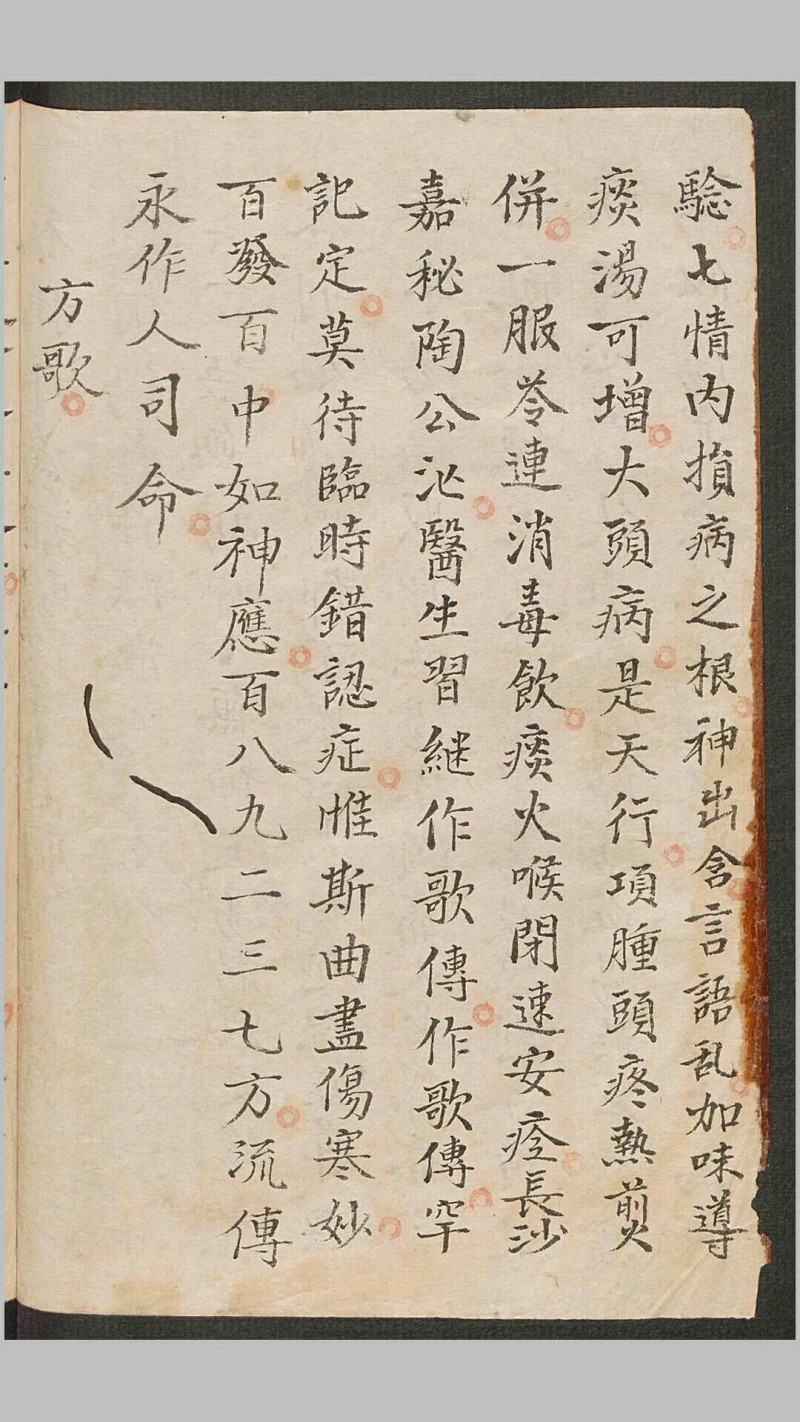 騐七情内損病之根神出含言語乱加味導
痰湯可增大頭病是天行項腫頭疼熱煎
併一服苓連消毒飲痰火喉閉速安痊長沙
嘉秘陶公泌醫生習継作歌傳作歌傳罕
記定莫待臨時錯認症惟斯曲盡傷寒妙
百發百中如神應百八九二三七方流傳
永作人司命
方歌